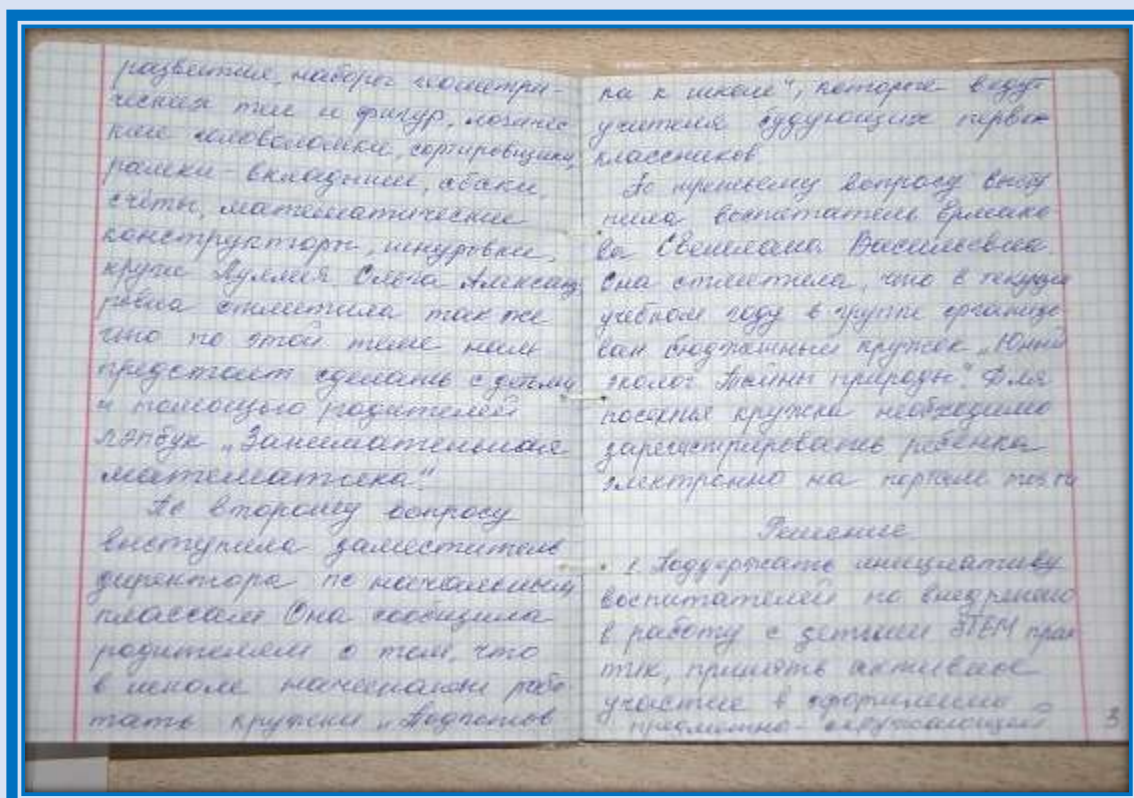 развития, наборы геометри-
ческих тел и фигур, логичес
кие головоломки, сортировщики,
рамки-вкладыши, абаки,
счёты, математические
конструкторы, шнуровки,
круги Луллия Ольга Александ
ровна отметила так же
что по этой теме нам
предстоит сделать с детьми
и помощью родителей
лэпбук „Занимательная
математика."
По второму вопросу
выступила заместитель
директора по начальным
классам Она сообщила
родителям о том, что
в школе начинают рабо
тать кружки „Подготов
ка к школе", которые ведут
учителя будующих перво
классников.
По третьему вопросу высту
пила воспитатель Ермако-
ва Светлана Васильевна.
Она отметила, что в текущем
учебном году в группе организо
ван бюджетный кружок „Юный
эколог Тайны природы". Для
посещения кружка необходимо
зарегистрировать ребёнка
электронно на портале
Решение
1. Поддержать инициативу
воспитателей по внедрению
в работу с детьми STEM прак
тик, принять активное
участие в оформлении
предметно-окружающей
3